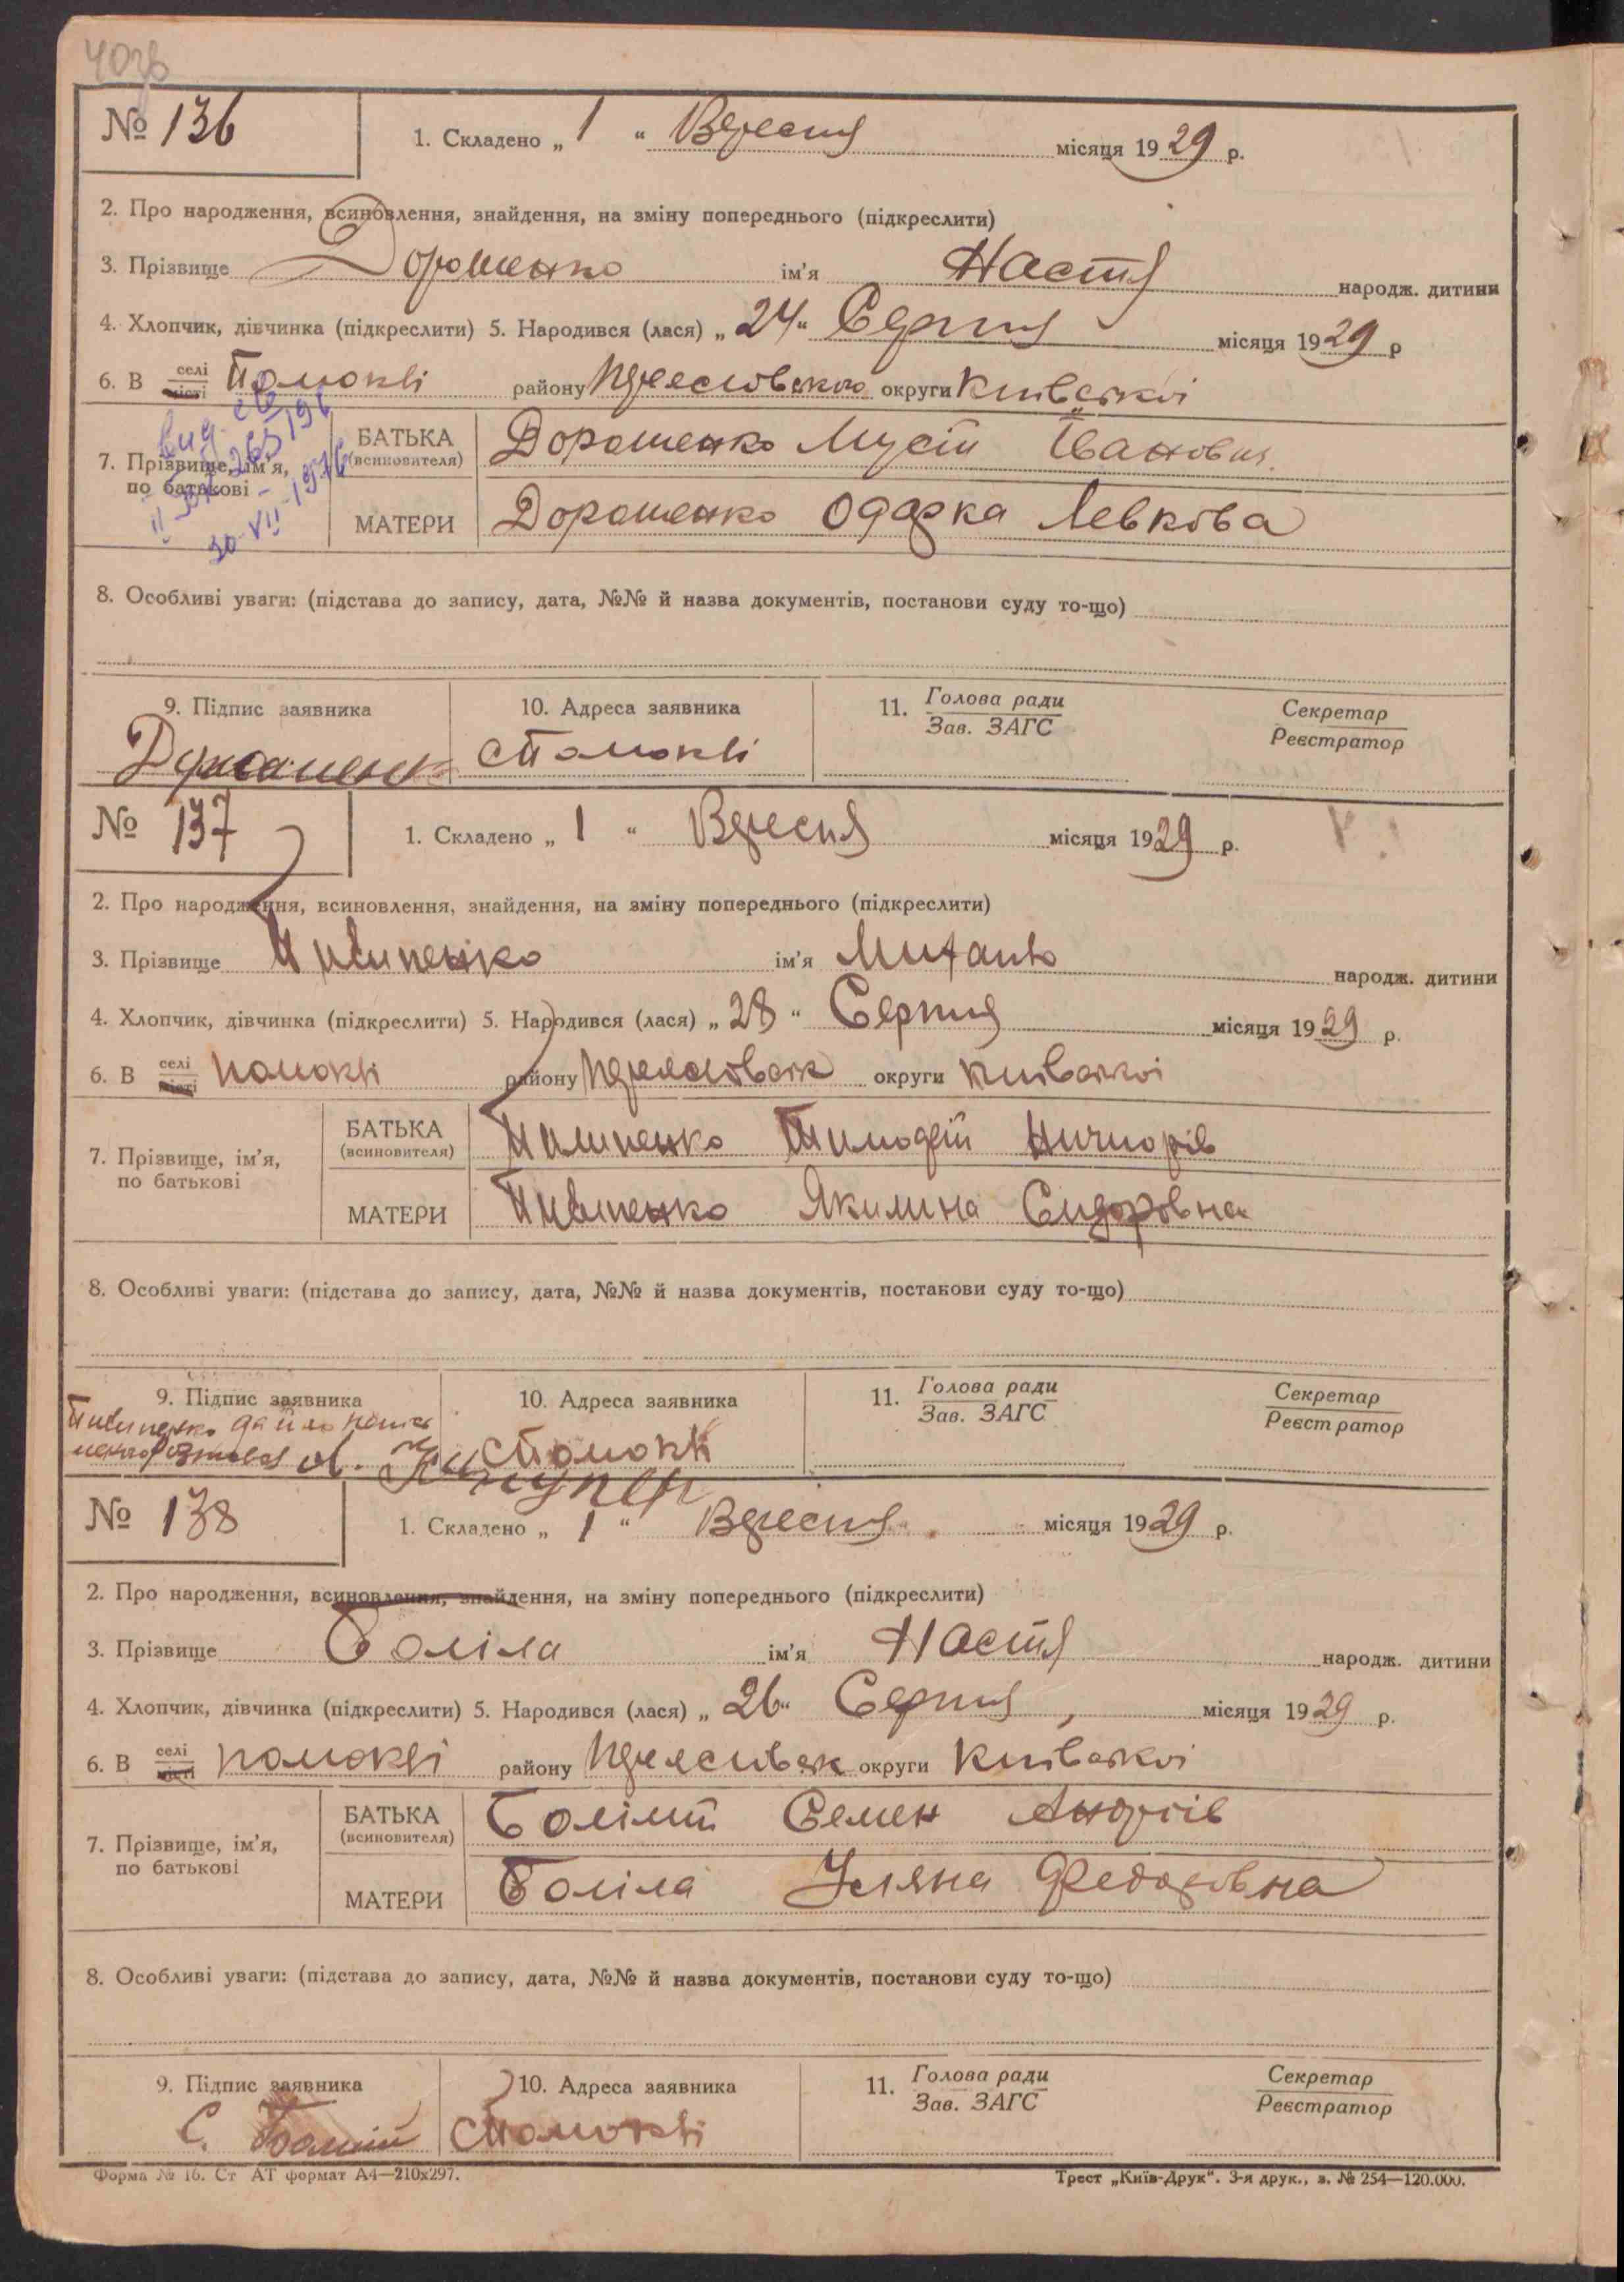 № 136
1. Складено „ 1 “ Вересня місяця 1929 р.
2. Про народження, всиновлення, знайдення, на зміну попереднього (підкреслити)
3. Прізвище Дорошенко ім'я Настя народж. дитини
4. Хлопчик, дівчинка (підкреслити) 5. Народився (лася) „ 24 “ Серпня місяця 1929 р
6. В селі місті Помоклі району округи Київської
7. Прізвище, ім'я, по батькові
БАТЬКА (всиновителя) Дорошенко Мусій Іванович
МАТЕРИ Дорошенко Одарка Левкова
8. Особливі уваги: (підстава до запису, дата, №№ й назва документів, постанови суду то-що)
9. Підпис заявника 10. Адреса заявника 11. Голова ради Зав. ЗАГС Секретар Реєстратор
с Помоклі
№ 137
1. Складено „ 1 “ Вересня місяця 1929 р.
2. Про народження, всиновлення, знайдення, на зміну попереднього (підкреслити)
3. Прізвище Пилипенко ім'я Михайло народж. дитини
4. Хлопчик, дівчинка (підкреслити) 5. Народився (лася) „ 28 “ Серпня місяця 1929 р.
6. В селі місті Помоклі району округи Київської
7. Прізвище, ім'я, по батькові
БАТЬКА (всиновителя) Пилипенко Тимофій Ничипорів
МАТЕРИ Пилипенко Якилина Сидоровна
8. Особливі уваги: (підстава до запису, дата, №№ й назва документів, постанови суду то-що)
9. Підпис заявника 10. Адреса заявника 11. Голова ради Зав. ЗАГС Секретар Реєстратор
Пилипенко
с Помоклі
№ 138
1. Складено „ 1 “ Вересня місяця 1929 р.
2. Про народження, всиновлення, знайдення, на зміну попереднього (підкреслити)
3. Прізвище Боліла ім'я Настя народж. дитини
4. Хлопчик, дівчинка (підкреслити) 5. Народився (лася) „ 26 “ Серпня місяця 1929 р.
6. В селі місті Помоклі району округи Київської
7. Прізвище, ім'я, по батькові
БАТЬКА (всиновителя) Болілий Семен Андріїв
МАТЕРИ Боліла Уляна Федоровна
8. Особливі уваги: (підстава до запису, дата, №№ й назва документів, постанови суду то-що)
9. Підпис заявника 10. Адреса заявника 11. Голова ради Зав. ЗАГС Секретар Реєстратор
с Помоклі
Форма № 16. Ст АТ формат А4—210x297. Трест „Київ-Друк“. 3-я друк., з. № 254—120.000.